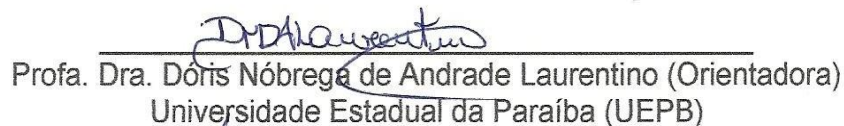 Profa. Dra. Dóris Nóbrega de Andrade Laurentino (Orientadora)
Universidade Estadual da Paraíba (UEPB)